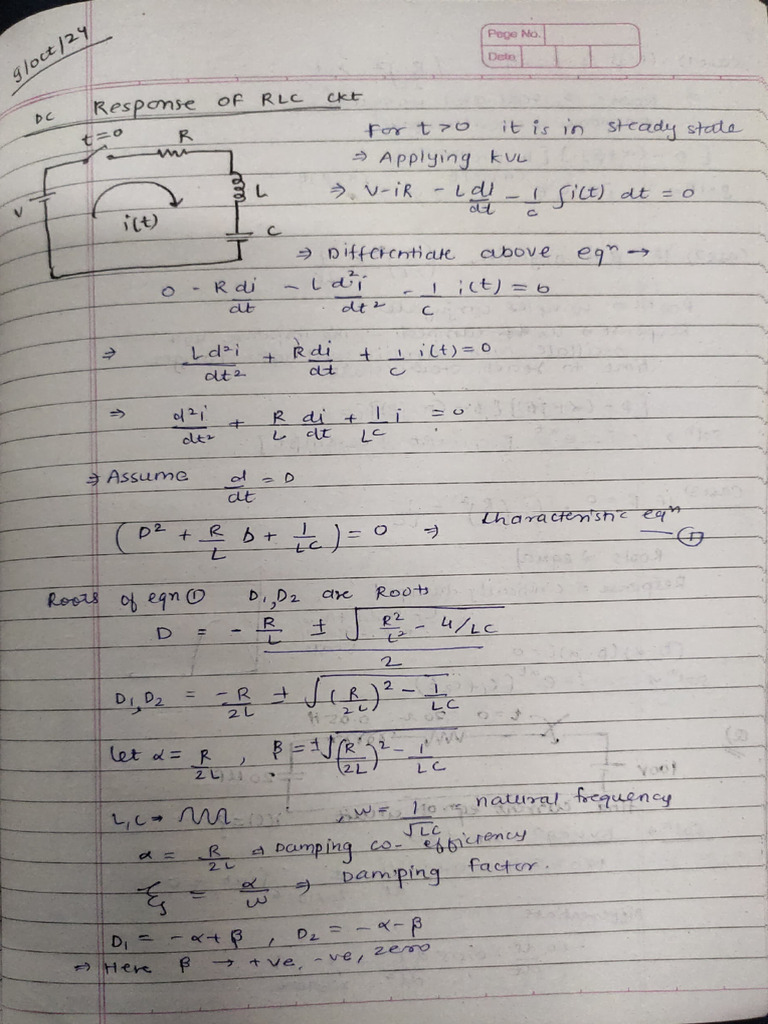 9/oct/24
Page No.
Date
DC Response OF RLC ckt
t=0 R
L
V
i(t)
C
For t>0 it is in steady state
⇒ Applying KVL
⇒ V-iR - L di/dt - 1/c ∫i(t) dt = 0
⇒ Differentiate above eqⁿ →
0 - R di/dt - L d²i/dt² - 1/C i(t) = 0
⇒ L d²i/dt² + R di/dt + 1/C i(t) = 0
⇒ d²i/dt² + R/L di/dt + 1/LC i = 0
⇒ Assume d/dt = D
(D² + R/L D + 1/LC) = 0 ⇒ Characteristic eqⁿ
— ①
Roots of eqn ① D₁,D₂ are Roots
D = - R/L ± √(R²/L² - 4/LC) / 2
D₁,D₂ = -R/2L ± √((R/2L)² - 1/LC)
Let α = R/2L , β = ±√((R/2L)² - 1/LC)
L,C → , ω = 1/√LC = natural frequency
α = R/2L ⇒ Damping co-efficiency
ξ = α/ω ⇒ Damping factor.
D₁ = -α+β , D₂ = -α-β
⇒ Here β → +ve, -ve, zero